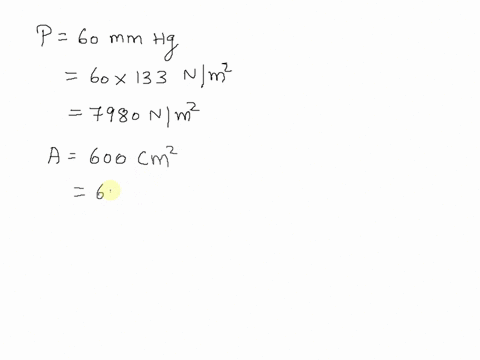 P = 60 mm Hg
= 60 × 133 N/m²
= 7980 N/m²
A = 600 cm²
= 6